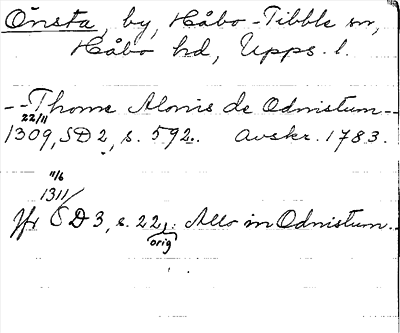 Önsta, by, Håbo-Tibble sn,
Håbo hd, Upps. l.
--Thome Alonis de Odnistum--
22/11
1309, SD 2, s. 592. Avskr. 1783.
11/6
1311/
Jfr SD 3, s. 22, : Allo in Odnistum--
orig